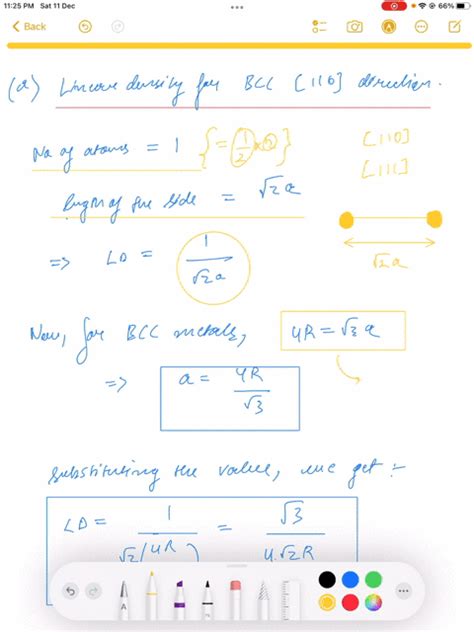 11:25 PM Sat 11 Dec 66%
Back
(a) Linear density for BCC [110] direction.
No of atoms = 1 { = (1/2 × 2) }
[110]
[111]
length of the side = √2 a
√2 a
=> LD = 1/√2a
Now, for BCC metals,
4R = √3 a
=> a = 4R/√3
Substituting the value, we get :-
LD = 1/√2(4R = √3/4.√2R